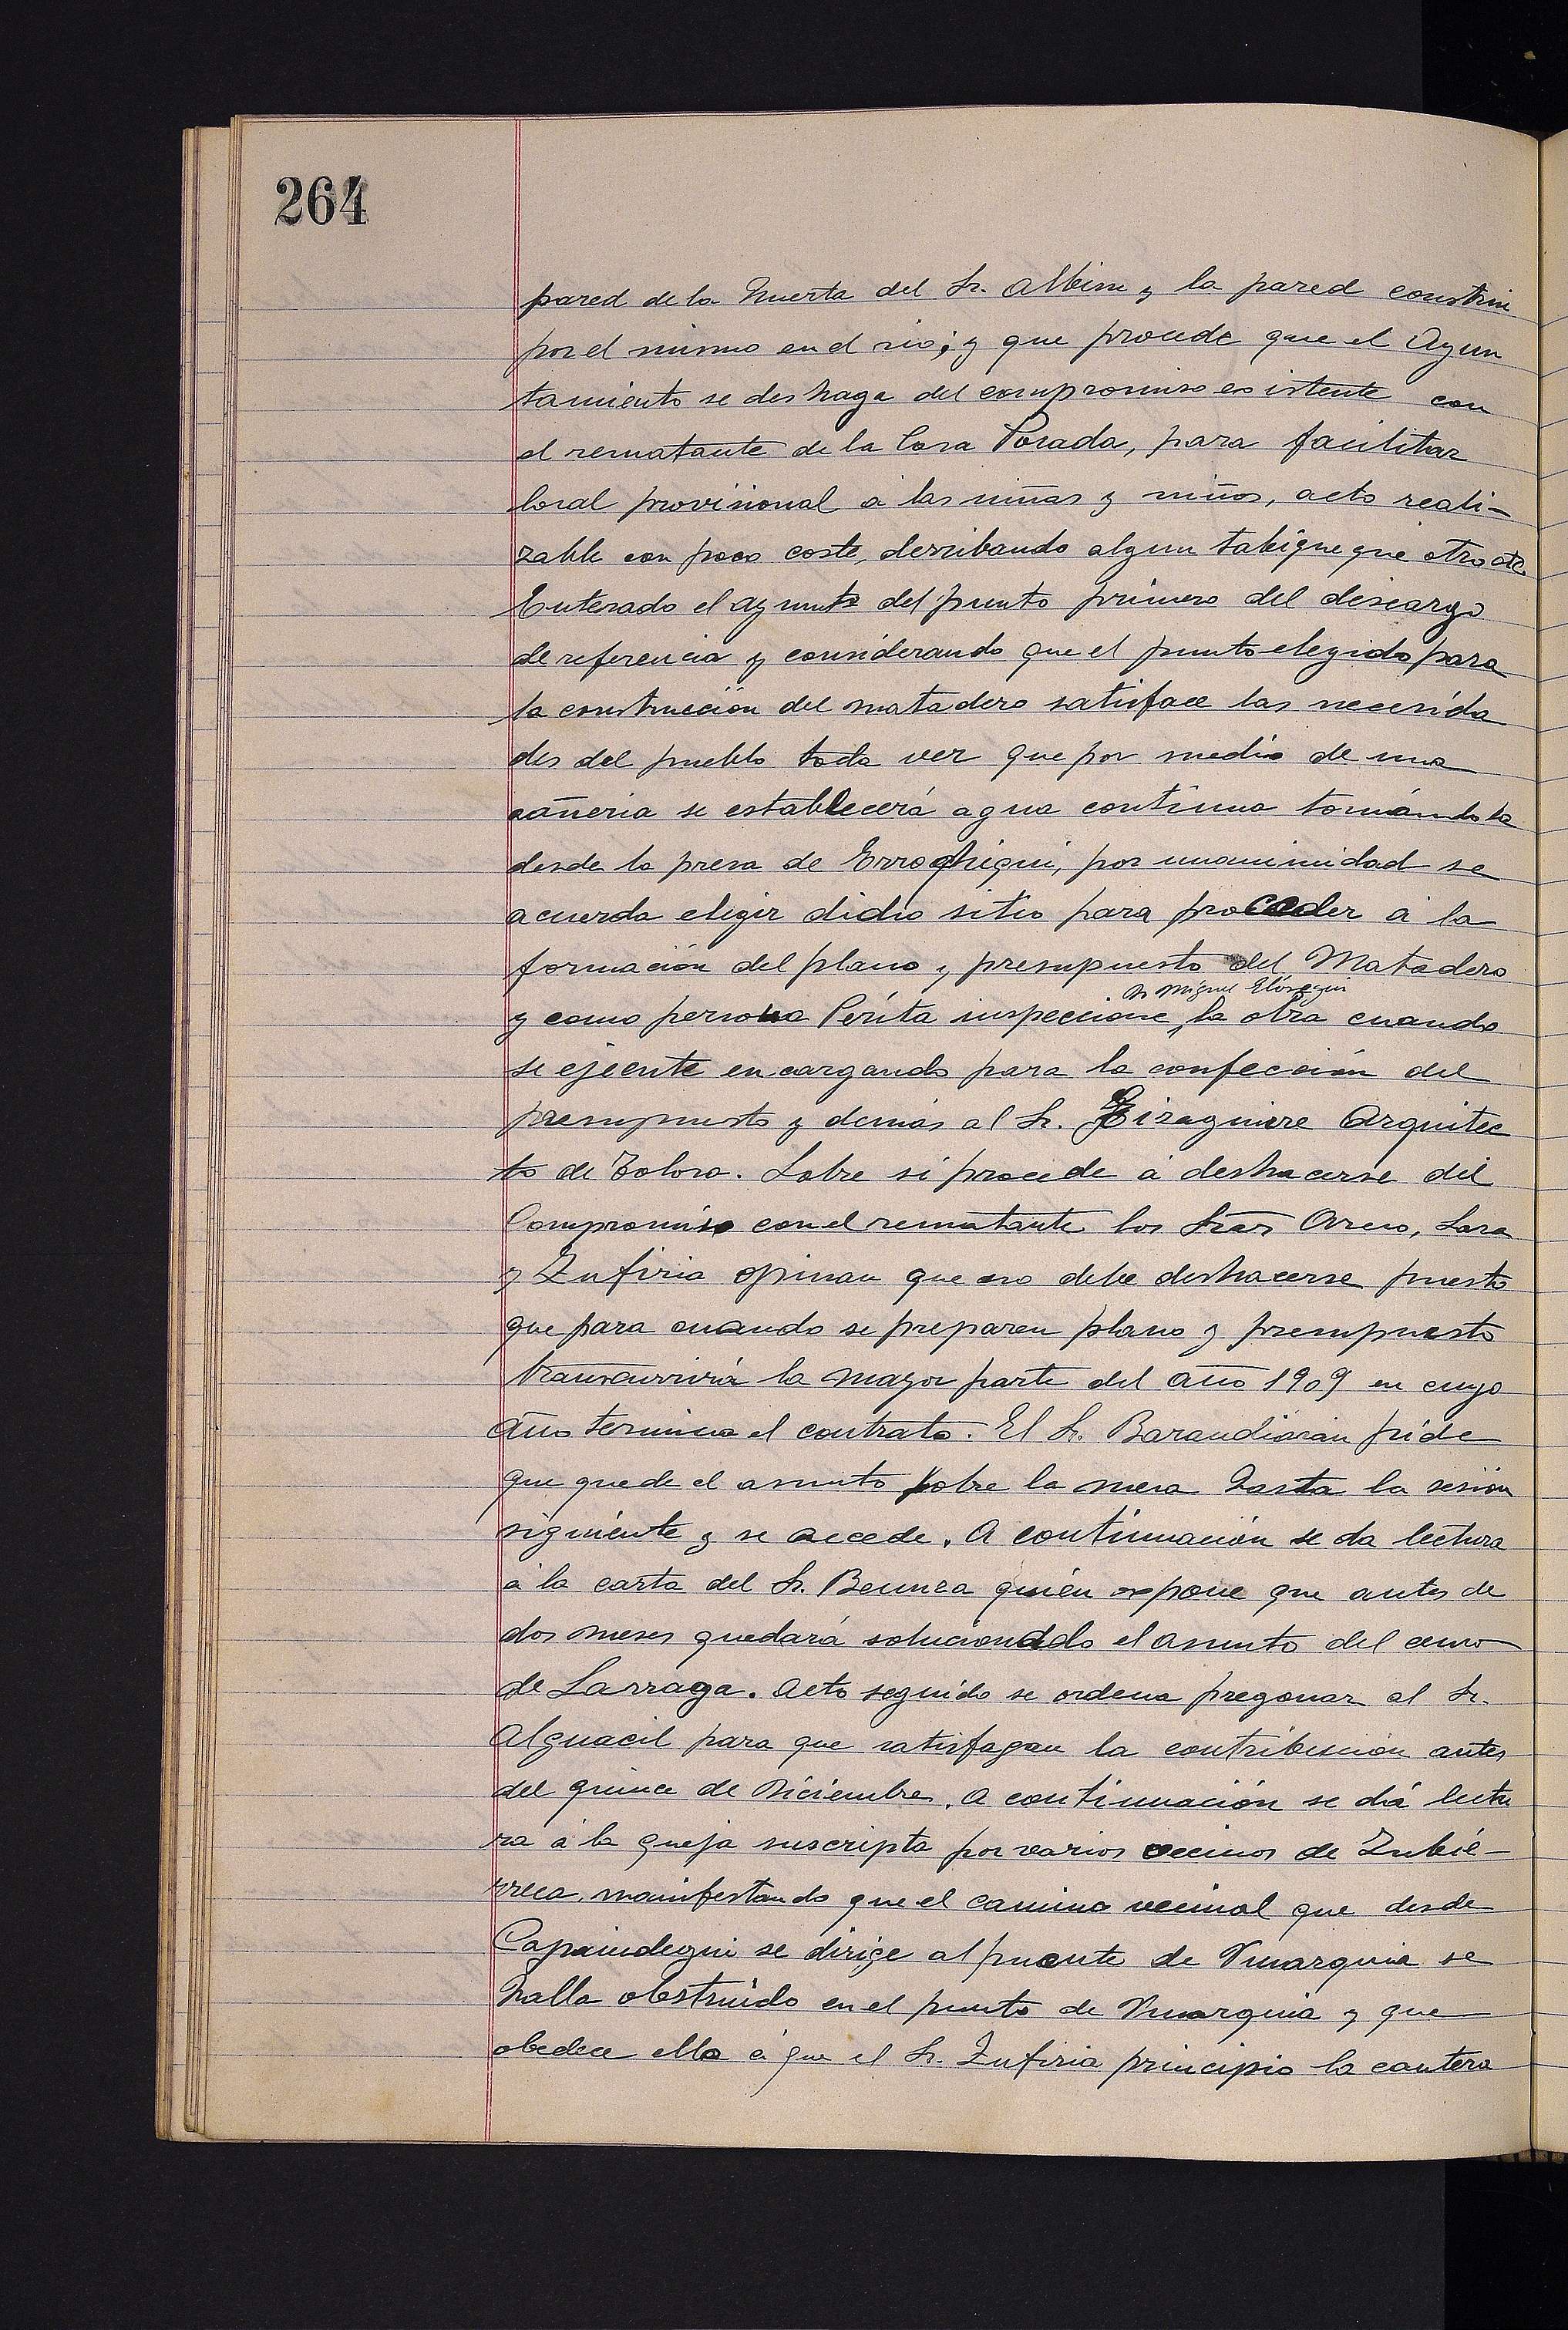 264
pared de la huerta del Sr. Albisu y la pared construi
por el mismo en el rio; y que procede que el Ayun
tamiento se deshaga del compromiso existente con
el rematante de la Casa Posada, para facilitar
local provisional á las niñas y niños, acto reali-
zable con poco coste, derribando algun tabique que otro etc.
Enterado el aynmto del punto primero del descargo
de referencia y considerando que el punto elegido para
la construcción del matadero satisface las necesida
des del pueblo toda vez que por medio de una
cañeria se establecerá agua continua tomándola
desde la presa de Errochiqui, por unanimidad se
acuerda elegir dicho sitio para proceder á la
formación del plano y presupuesto del Matadero
Dn Miguel Elósegui
y como persona Périta inspeccione la obra cuando
se ejecute encargando para la confección del
presupuesto y demás al Sr. Eizaguirre Arquitec
to de Tolosa. Sobre si procede á deshacerse del
Compromiso con el rematante los Sres Orero, Lasa
y Zufiria opinan que no debe deshacerse puesto
que para cuando se preparen plano y presupuesto
transcurrirá la mayor parte del año 1909 en cuyo
año termina el contrato. El Sr. Barandiarán pide
que quede el asunto sobre la mesa hasta la sesión
siguiente y se accede. A continuación se da lectura
á la carta del Sr. Beunza quién expone que antes de
dos meses quedará solucionado el asunto del censo
de Larraga. Acto seguido se ordena pregonar al Sr.
Alguacil para que satisfagan la contribución antes
del quince de Diciembre. A continuación se dá lectu
ra á la queja suscripta por varios vecinos de Zubié-
rreca, manifestando que el camino vecinal que desde
Capaindegui se dirige al puente de Vmarquia se
halla obstruido en el punto de Vmarquia y que
obedece ello á que el Sr. Zufiria principio la cantera